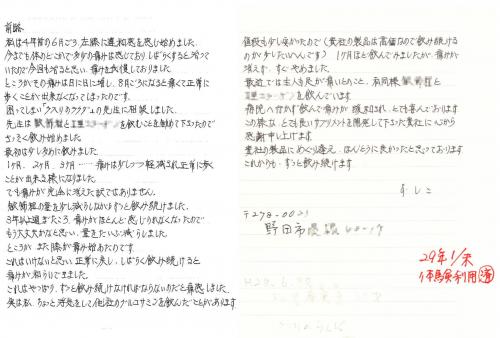 前略
私は4年前の6月ごろ、左膝に違和感を感じ始めました。
今までも体のどこかで多少の痛みは感じており、しばらくすると治って
いたので今回も治ると思い、痛みを我慢しておりました。
ところがその痛みは日に日に増し、8月ごろになると痛くて正常に
歩くことが出来なくなってしまったのです。
困ってしまい「クスリのフクダ」の先生に相談しました。
先生は を飲むことを勧めて下さったので
さっそく飲み始めました。
最初は少な目に飲みました。
1ヶ月、2ヶ月、3ヶ月……痛みは少しづつ軽減され正常に歩く
ことが出来る様になりました。
でも痛みが完全に消えた訳ではありません。
の量を少し減らしながらずっと飲み続けました。
3年以上過ぎたころ、痛みがほとんど感じられなくなったので
もう大丈夫かなと思い、量をだいぶ減らしました。
ところが また膝が痛み始めたのです。
これはいけないと思い、正常に戻し、しばらく飲み続けると
痛みが和らいできました。
これはやっぱり、ずっと飲み続けなければならないのだと痛感しました。
実は私、ちょっと浮気をして他社のグルコサミンを飲んだことがあります。
値段も少し安かったので(貴社の製品は高価なので飲み続ける
のが少したいへんです) 1ヶ月ほど飲んでみましたが、痛みが
増えず、すぐやめました。
最近では主人も足が痛いとのこと、私同様
を飲んでいます。
病院へ行かず飲んで痛みが緩和され、とても喜んでおります
この様な とても良いサプリメントを開発して下さった貴社に心から
感謝申し上げます
貴社の製品にめぐり逢え、ほんとうに良かったと思っております
これからも、ずっと飲み続けます
〒278-00
野田市
29年1/末